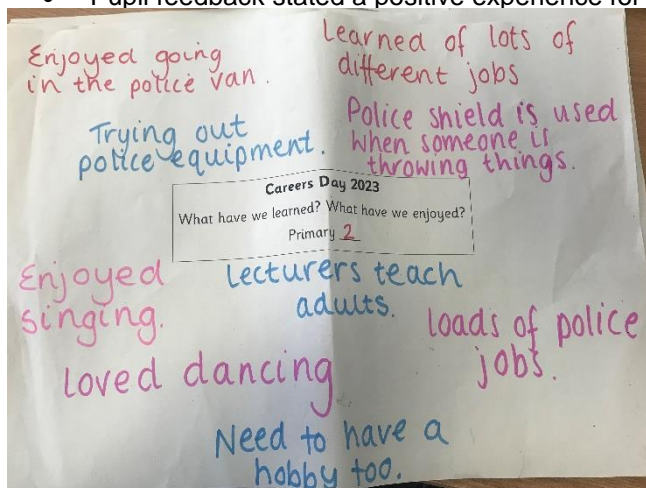 Pupil feedback stated a positive experience for
Enjoyed going
in the police van.
Learned of lots of
different jobs
Trying out
police equipment.
Police shield is used
when someone is
throwing things.
Careers Day 2023
What have we learned? What have we enjoyed?
Primary 2
Enjoyed
singing.
Lecturers teach
adults.
loads of police
jobs.
Loved dancing
Need to have a
hobby too.